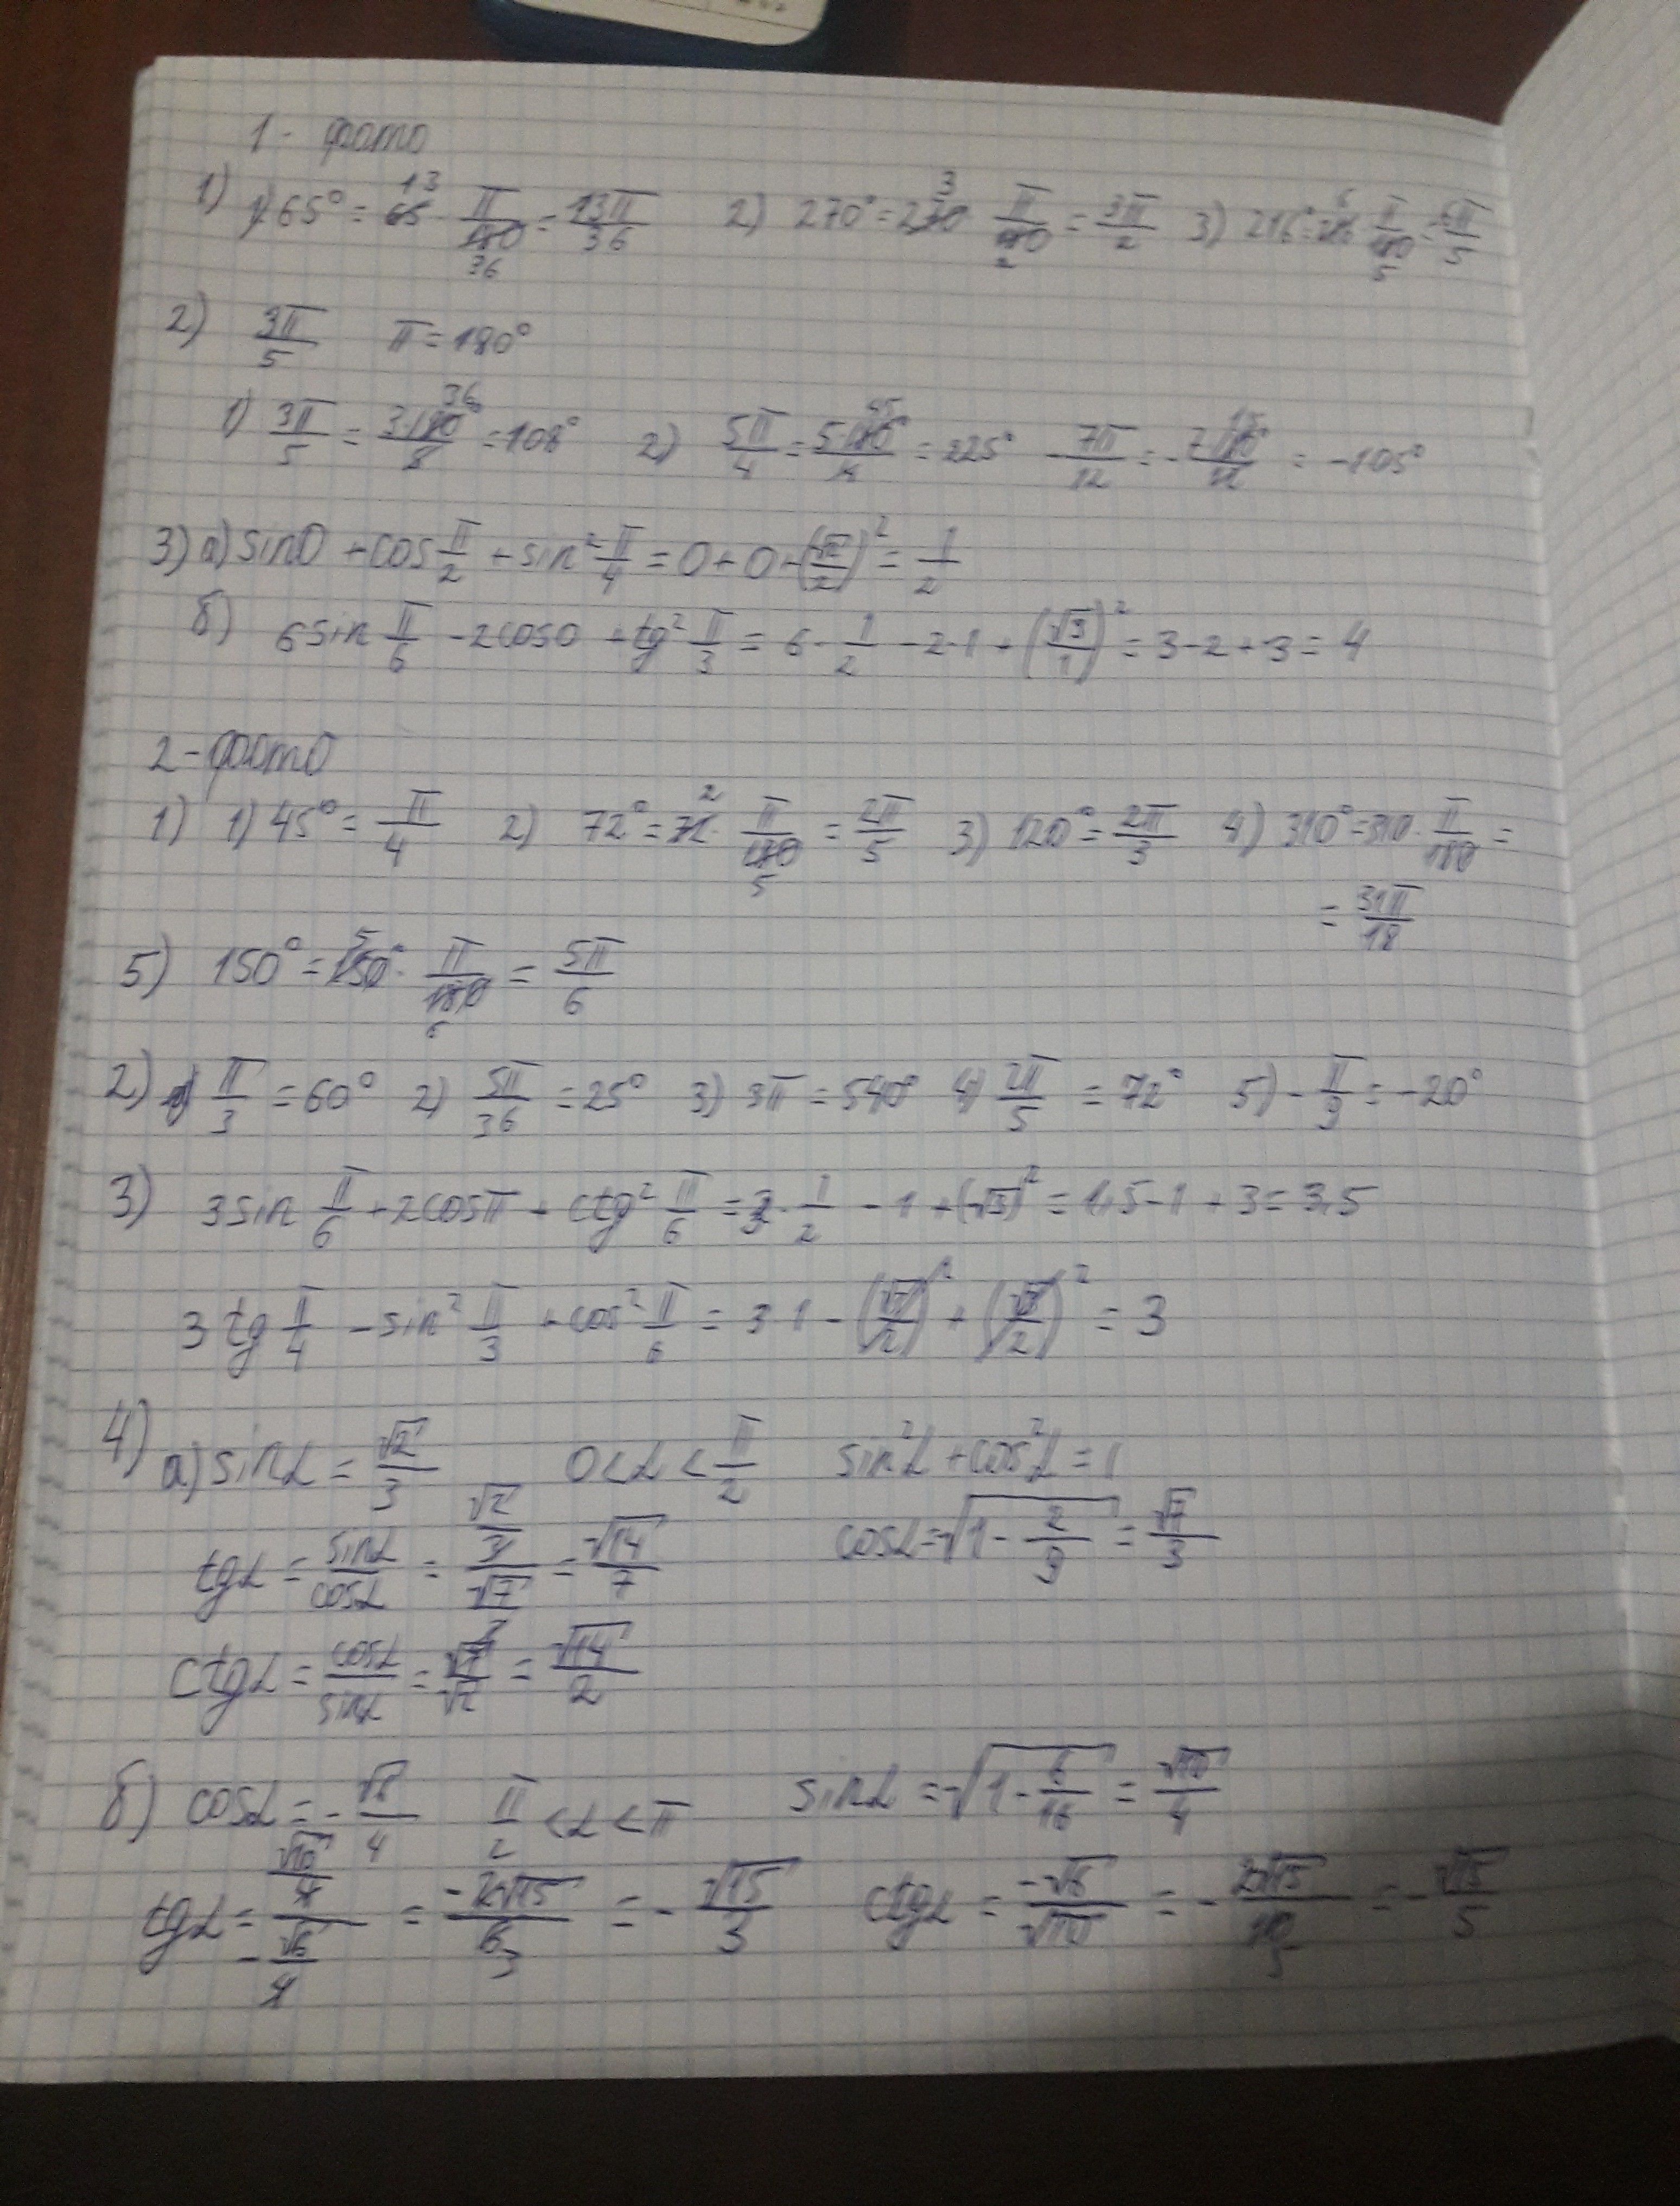 1 - фото
1) 1) 65° = 65 · π/180 = 13π/36 2) 270° = 270 π/180 = 3π/2 3) 216° = 216 π/180 = 6π/5
2) 3π/5 π = 180°
1) 3π/5 = 3·180°/5 = 108° 2) 5π/4 = 5·180°/4 = 225° -7π/12 = -7·180°/12 = -105°
3) а) sin0 + cos π/2 + sin² π/4 = 0 + 0 + (√2/2)² = 1/2
б) 6 sin π/6 - 2cos0 + tg² π/3 = 6 · 1/2 - 2·1 + (√3/1)² = 3 - 2 + 3 = 4
2 - фото
1) 1) 45° = π/4 2) 72° = 72 · π/180 = 2π/5 3) 120° = 2π/3 4) 310° = 310 · π/180 =
= 31π/18
5) 150° = 150° · π/180 = 5π/6
2) 1) π/3 = 60° 2) 5π/36 = 25° 3) 3π = 540° 4) 2π/5 = 72° 5) -π/9 = -20°
3) 3 sin π/6 + 2cosπ + ctg² π/6 = 3 · 1/2 - 1 + (√3)² = 1,5 - 1 + 3 = 3,5
3 tg π/4 - sin² π/3 + cos² π/6 = 3·1 - (√3/2)² + (√3/2)² = 3
4) а) sinα = √2/3 0 < α < π/2 sin²α + cos²α = 1
tgα = sinα/cosα = (√2/3)/(√7/3) = √14/7 cosα = √(1 - 2/9) = √7/3
ctgα = cosα/sinα = √7/√2 = √14/2
б) cosα = -√6/4 π/2 < α < π sinα = √(1 - 6/16) = √10/4
tgα = (√10/4)/(-√6/4) = -2√15/6 = -√15/3 ctgα = -√6/√10 = -2√15/10 = -√15/5